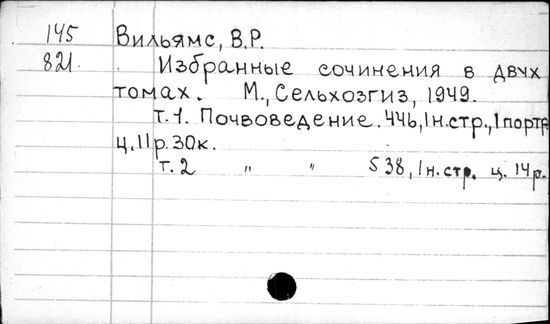 145 Вильямс, В.Р.
821. Избранные сочинения в двух
томах. М., Сельхозгиз, 1949.
т.1. Почвоведение. 446, 1н.стр., 1портр
ц. 11р.30к.
т.2 " " 538, 1н.стр. ц. 14р.